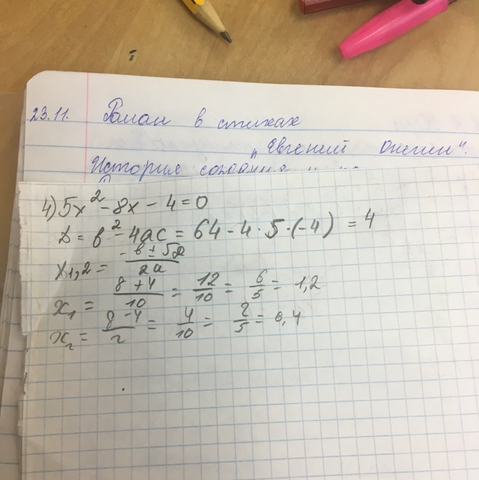 23.11. Роман в стихах
„Евгений Онегин".
История создания
4) 5x² - 8x - 4 = 0
D = b² - 4ac = 64 - 4 · 5 · (-4) = 4
x₁,₂ = (-b ± √D) / 2a
x₁ = (8 + 4) / 10 = 12/10 = 6/5 = 1,2
x₂ = (8 - 4) / 2 = 4/10 = 2/5 = 0,4